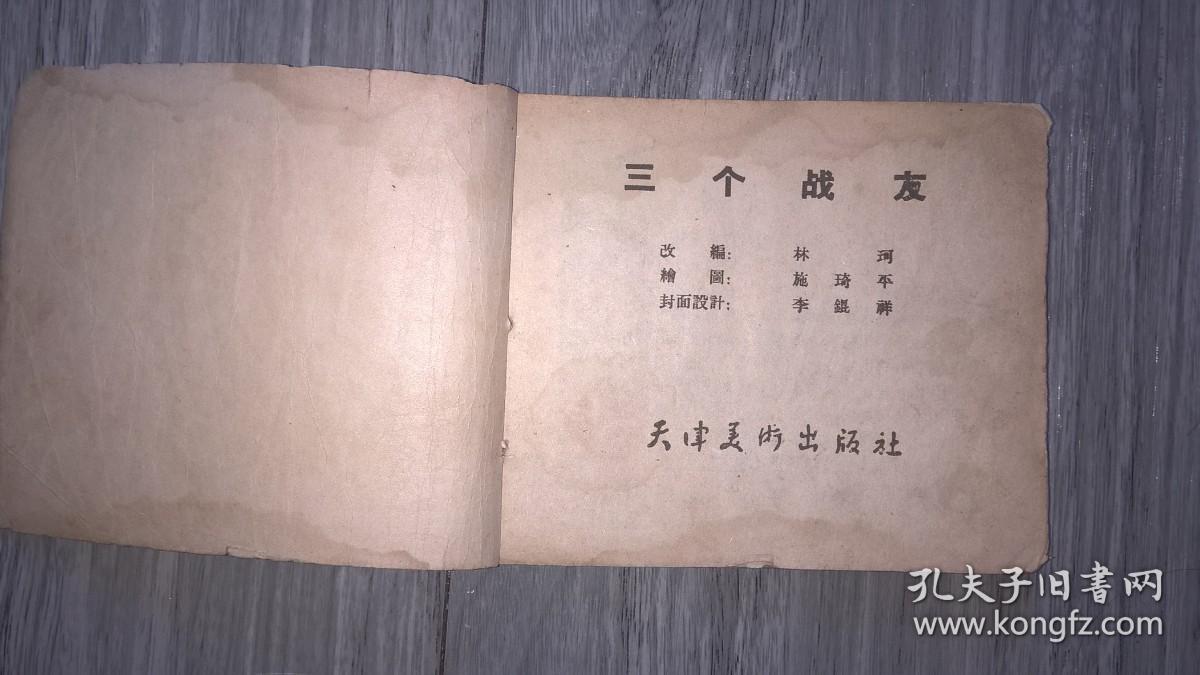 三个战友
改編：林珂
繪圖：施琦平
封面設計：李錕祥
天津美術出版社
孔夫子旧书网
www.kongfz.com